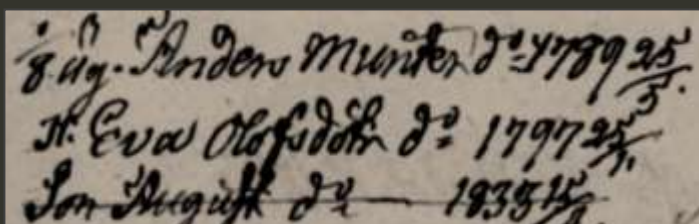 1/8 äg. Anders Munter do 1789 25/5.
H. Eva Olofsdotr do 1797 25/1.
Son August do 1835 15/